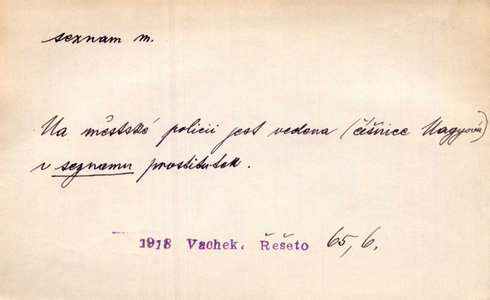 seznam m.
Na městské policii jest vedena (číšnice Nagyová)
v seznamu prostitutek.
1918 Vachek, Řešeto 65, 6.